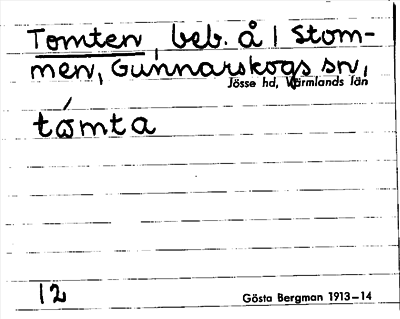 Tomten, beb. å | Stom-
men, Gunnarskogs sn,
Jösse hd, Värmlands län
tómta
12
Gösta Bergman 1913–14